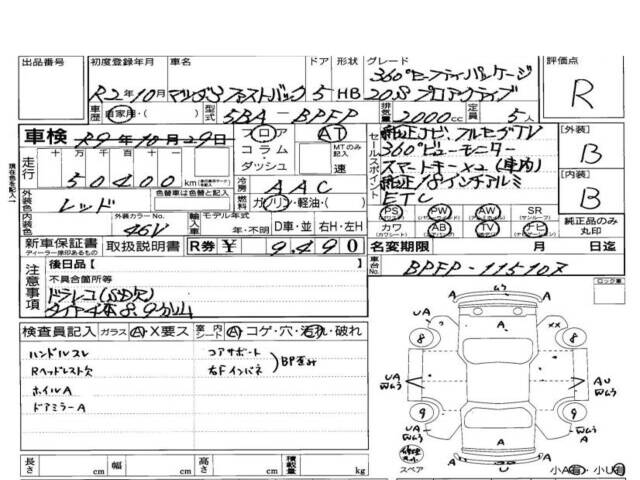 出品番号 初度登録年月 車名 ドア 形状 グレード 評価点
360°セーフティパッケージ
R2年10月 マツダ3ファストバック 5 HB 20S プロアクティブ R
車歴 自家用・( ) 型式 5BA-BPFP 排気量 2000cc 定員 5人
車検 R9年10月29日 フロア AT
コラム・ダッシュ MTのみ記入 速
走行 十万千百十 50400 km
セールスポイント
純正ナビ・フルセグTV
360°ビューモニター
スマートキー×2(車内)
純正18インチアルミ
ETC
【外装】 B
【内装】 B
外装色 レッド 色替車は色替と記入
冷房 AAC
燃料 ガソリン・軽油・( )
PS PW AW SR サンルーフ
カワ AB TV ナビ 純正品のみ丸印
内装色 外装カラーNo. 46V 輸入車 モデル年式 年・不明 D車・並 右H・左H
新車保証書 取扱説明書 R券 ¥ 9,490 名変期限 月 日迄
ディーラー捺印あるもの
車台No. BPFP-115107
現在色を記入
注意事項
後日品【
不具合箇所等
ドラレコ
ロック車
検査員記入 ガラス A・X要ス 室内シート A・コゲ・穴・汚れ・破れ
ハンドルスレ コアサポート
Rヘッドレスト欠 右Fインパネ BP歪み
ホイルA
ドアミラーA
長さ cm 幅 cm 高さ cm 積載量 kg
スペア 小A有・小U有